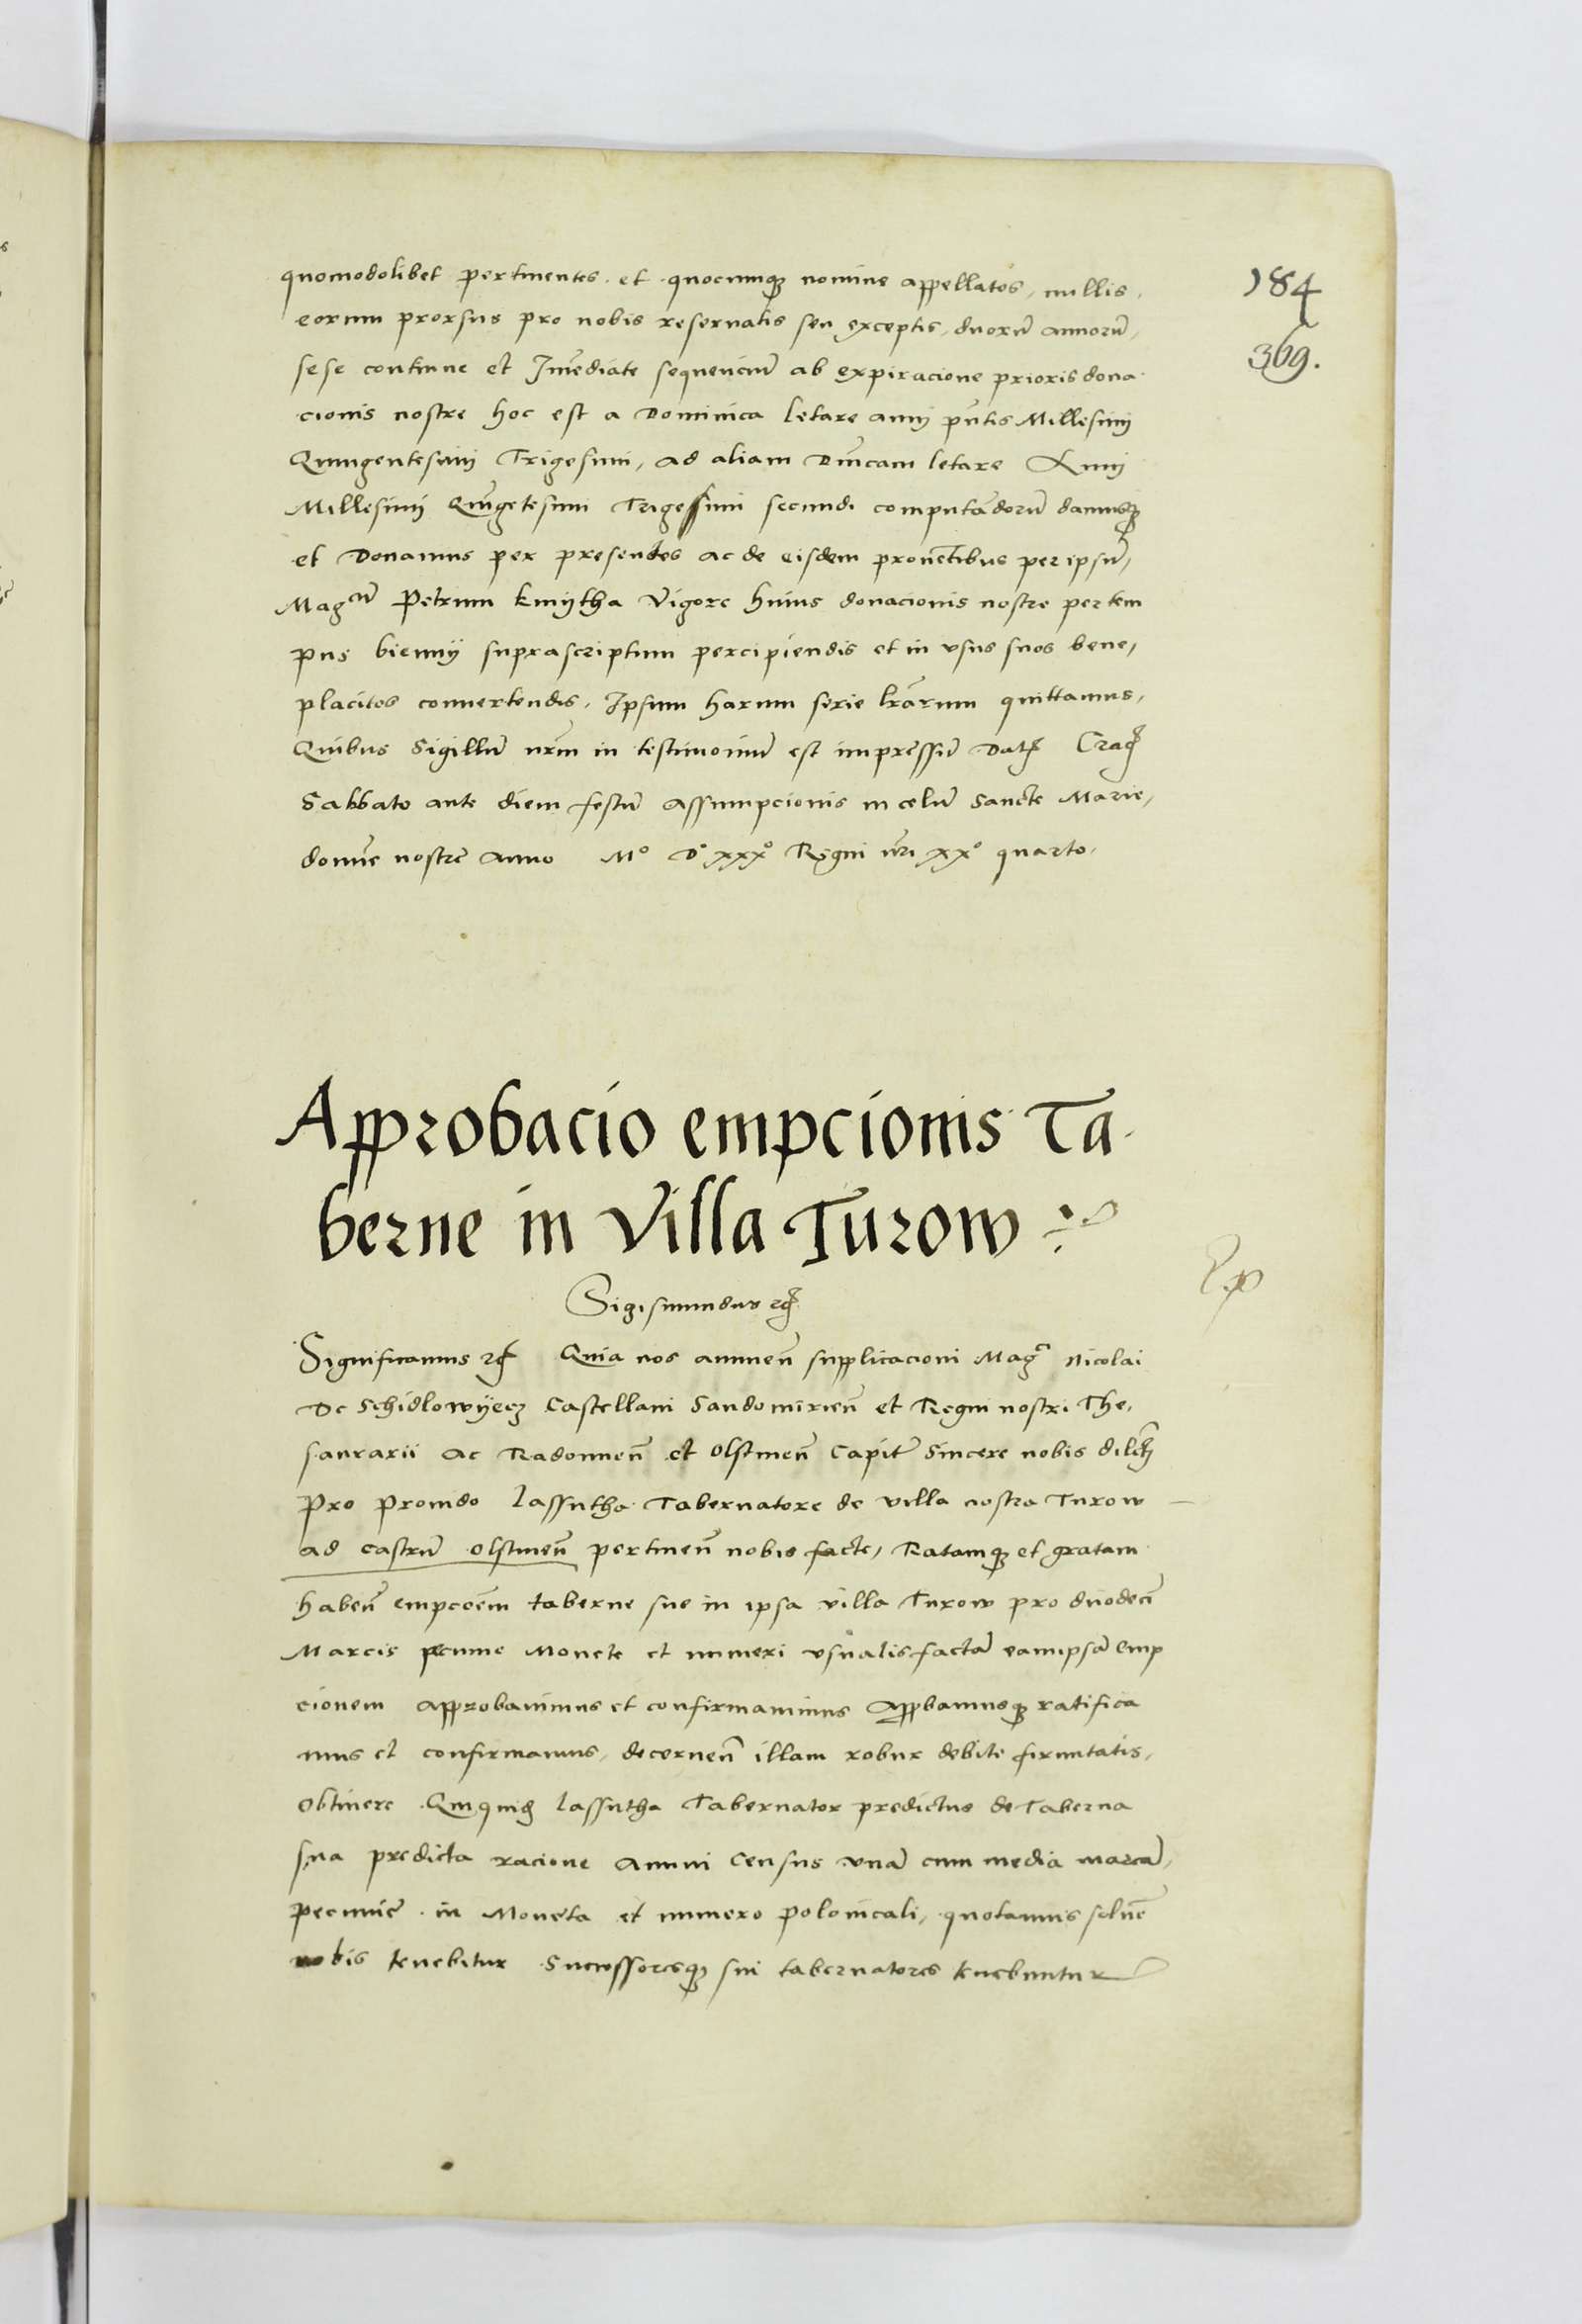 quomodolibet pertinentes et quocumq nomine appellatos, nullis,
184
eorum prorsus pro nobis reservatis seu exceptis, duorū annorū,
369.
sese continue et Imediate sequenciū ab expiracione prioris dona
cionis nostre hoc est a Dominica letare anni pn̄tis Millesimi
Quingentesimi Trigesimi, ad aliam Dn̄icam letare Anni
Millesimi Quīgētesimi Trigesimi secundi computādorū damusq
et Donamus per presentes ac de eisdem proventibus per ipsū,
Magcū Petrum kmytha Vigore huius donacionis nostre per tem
pus biennÿ suprascriptum percipiendis et in vsus suos bene,
placitos convertendis, Ipsum harum serie lrārum quittamus,
Quibus Sigillū nrm̄ in testimoniū est impressū Dat Crac
Sabbato ante diem festū assumpcionis in celū Sancte Marie,
domīe nostre Anno Mo Do xxxo Regni nr̄i xxo quarto.
Approbacio empcionis Ta
berne in Villa Turow
Sigismundus
Significamus Quia nos annuen̄ supplicacioni Mag Nicolai
De Schidlowÿecz Castellani Sandomirien̄ et Regni nostri The,
saurarii ac Radomien̄ et Olstinen̄ Capit Sincere nobis dilcti
pro provido lassutha Tabernatore de villa nostra Turow
ad castrū olstinen̄ pertinen̄ nobis facte, Ratamq et gratam
haben̄ empcoēm taberne sue in ipsa villa Turow pro duodeci
Marcis pecunie Monete et numeri vsualis factā eamipsā emp
cionem approbavimus et confirmavimus appbamusq ratifica
mus et confirmamus, decernen̄ illam robur debite firmitatis,
obtinere Quiquid lassutha Tabernator predictus de Taberna
sua predicta racione Annui Census vnā cum media marcā,
pecunie in Moneta et numero polonicali, quotannis solvē
nobis tenebitur Successoresq sui tabernatores tenebuntur